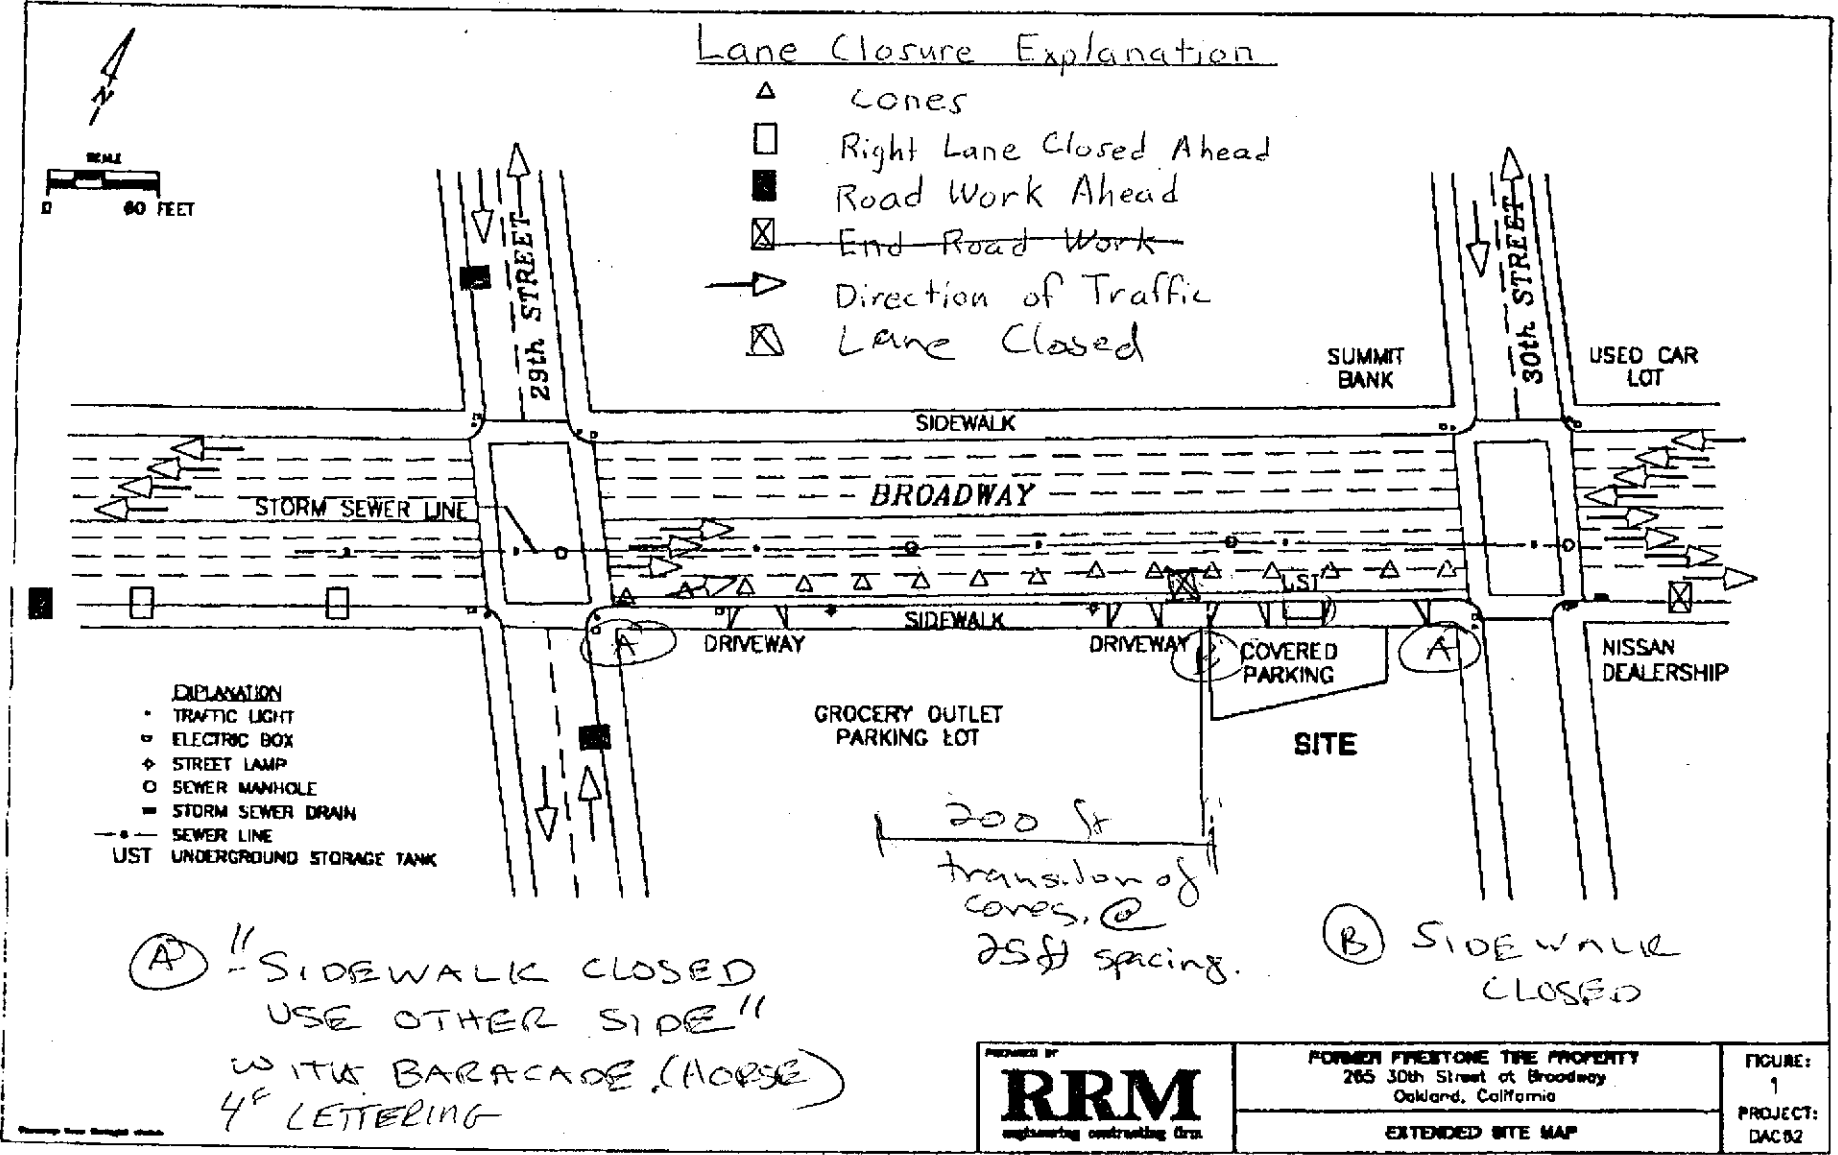 Lane Closure Explanation
Cones
Right Lane Closed Ahead
Road Work Ahead
End Road Work
Direction of Traffic
Lane Closed
N
SCALE
0 60 FEET
29th STREET
30th STREET
SUMMIT
BANK
USED CAR
LOT
SIDEWALK
BROADWAY
STORM SEWER LINE
UST
SIDEWALK
A
DRIVEWAY
DRIVEWAY
B
COVERED
PARKING
A
NISSAN
DEALERSHIP
GROCERY OUTLET
PARKING LOT
SITE
EXPLANATION
TRAFFIC LIGHT
ELECTRIC BOX
STREET LAMP
SEWER MANHOLE
STORM SEWER DRAIN
SEWER LINE
UST UNDERGROUND STORAGE TANK
200 ft
transiton of
cones. @
25ft spacing.
A "SIDEWALK CLOSED
USE OTHER SIDE"
WITH BARACADE. (HORSE)
4" LETTERING
B SIDEWALK
CLOSED
PREPARED BY
RRM
engineering contracting firm
FORMER FIRESTONE TIRE PROPERTY
265 30th Street at Broadway
Oakland, California
EXTENDED SITE MAP
FIGURE:
1
PROJECT:
DAC52